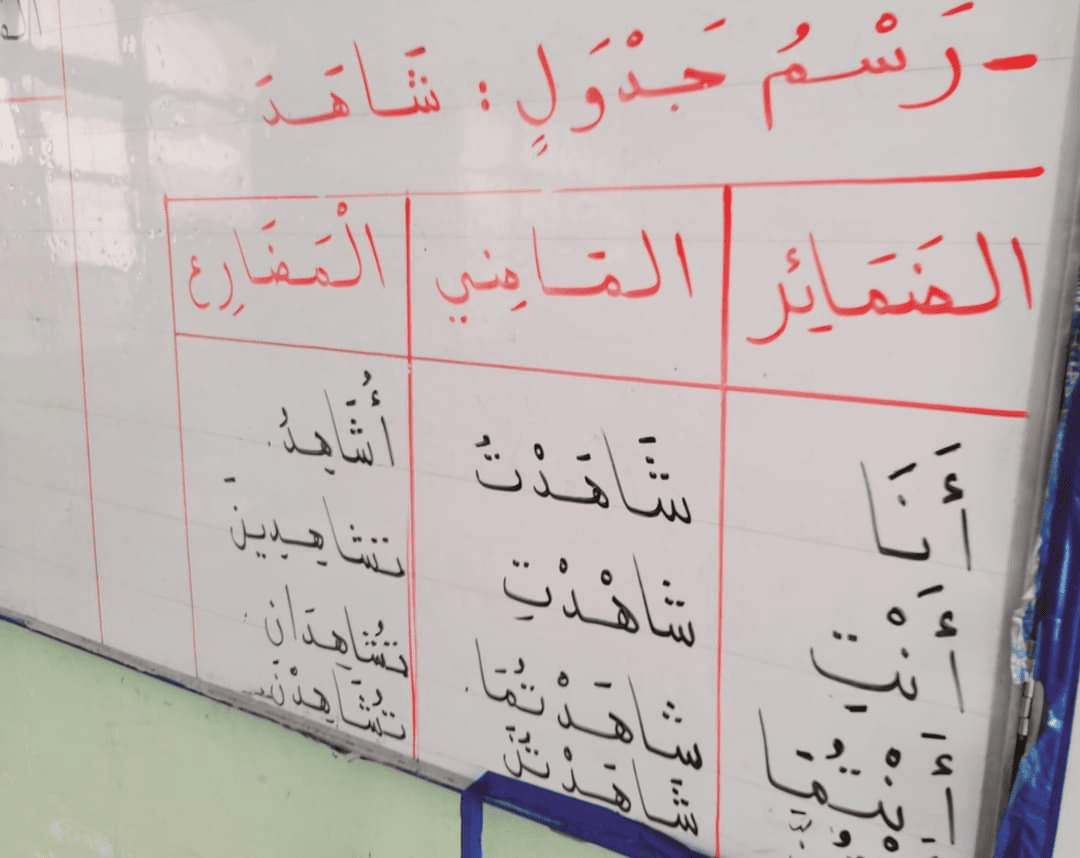 - رَسْمُ جَدْوَلٍ : شَاهَدَ
الضَمَائِر الـمَـاضِي الْمَضَارِع
أَنَا شَاهَدْتُ أُشَاهِدُ
أَنْتِ شاهْدْتِ تشاهِدِينَ
أَنْتُمَا شاهَدْتُمَا تُشاهِدَان
شَاهَدْتُنَّ تُشَاهِدْنَ